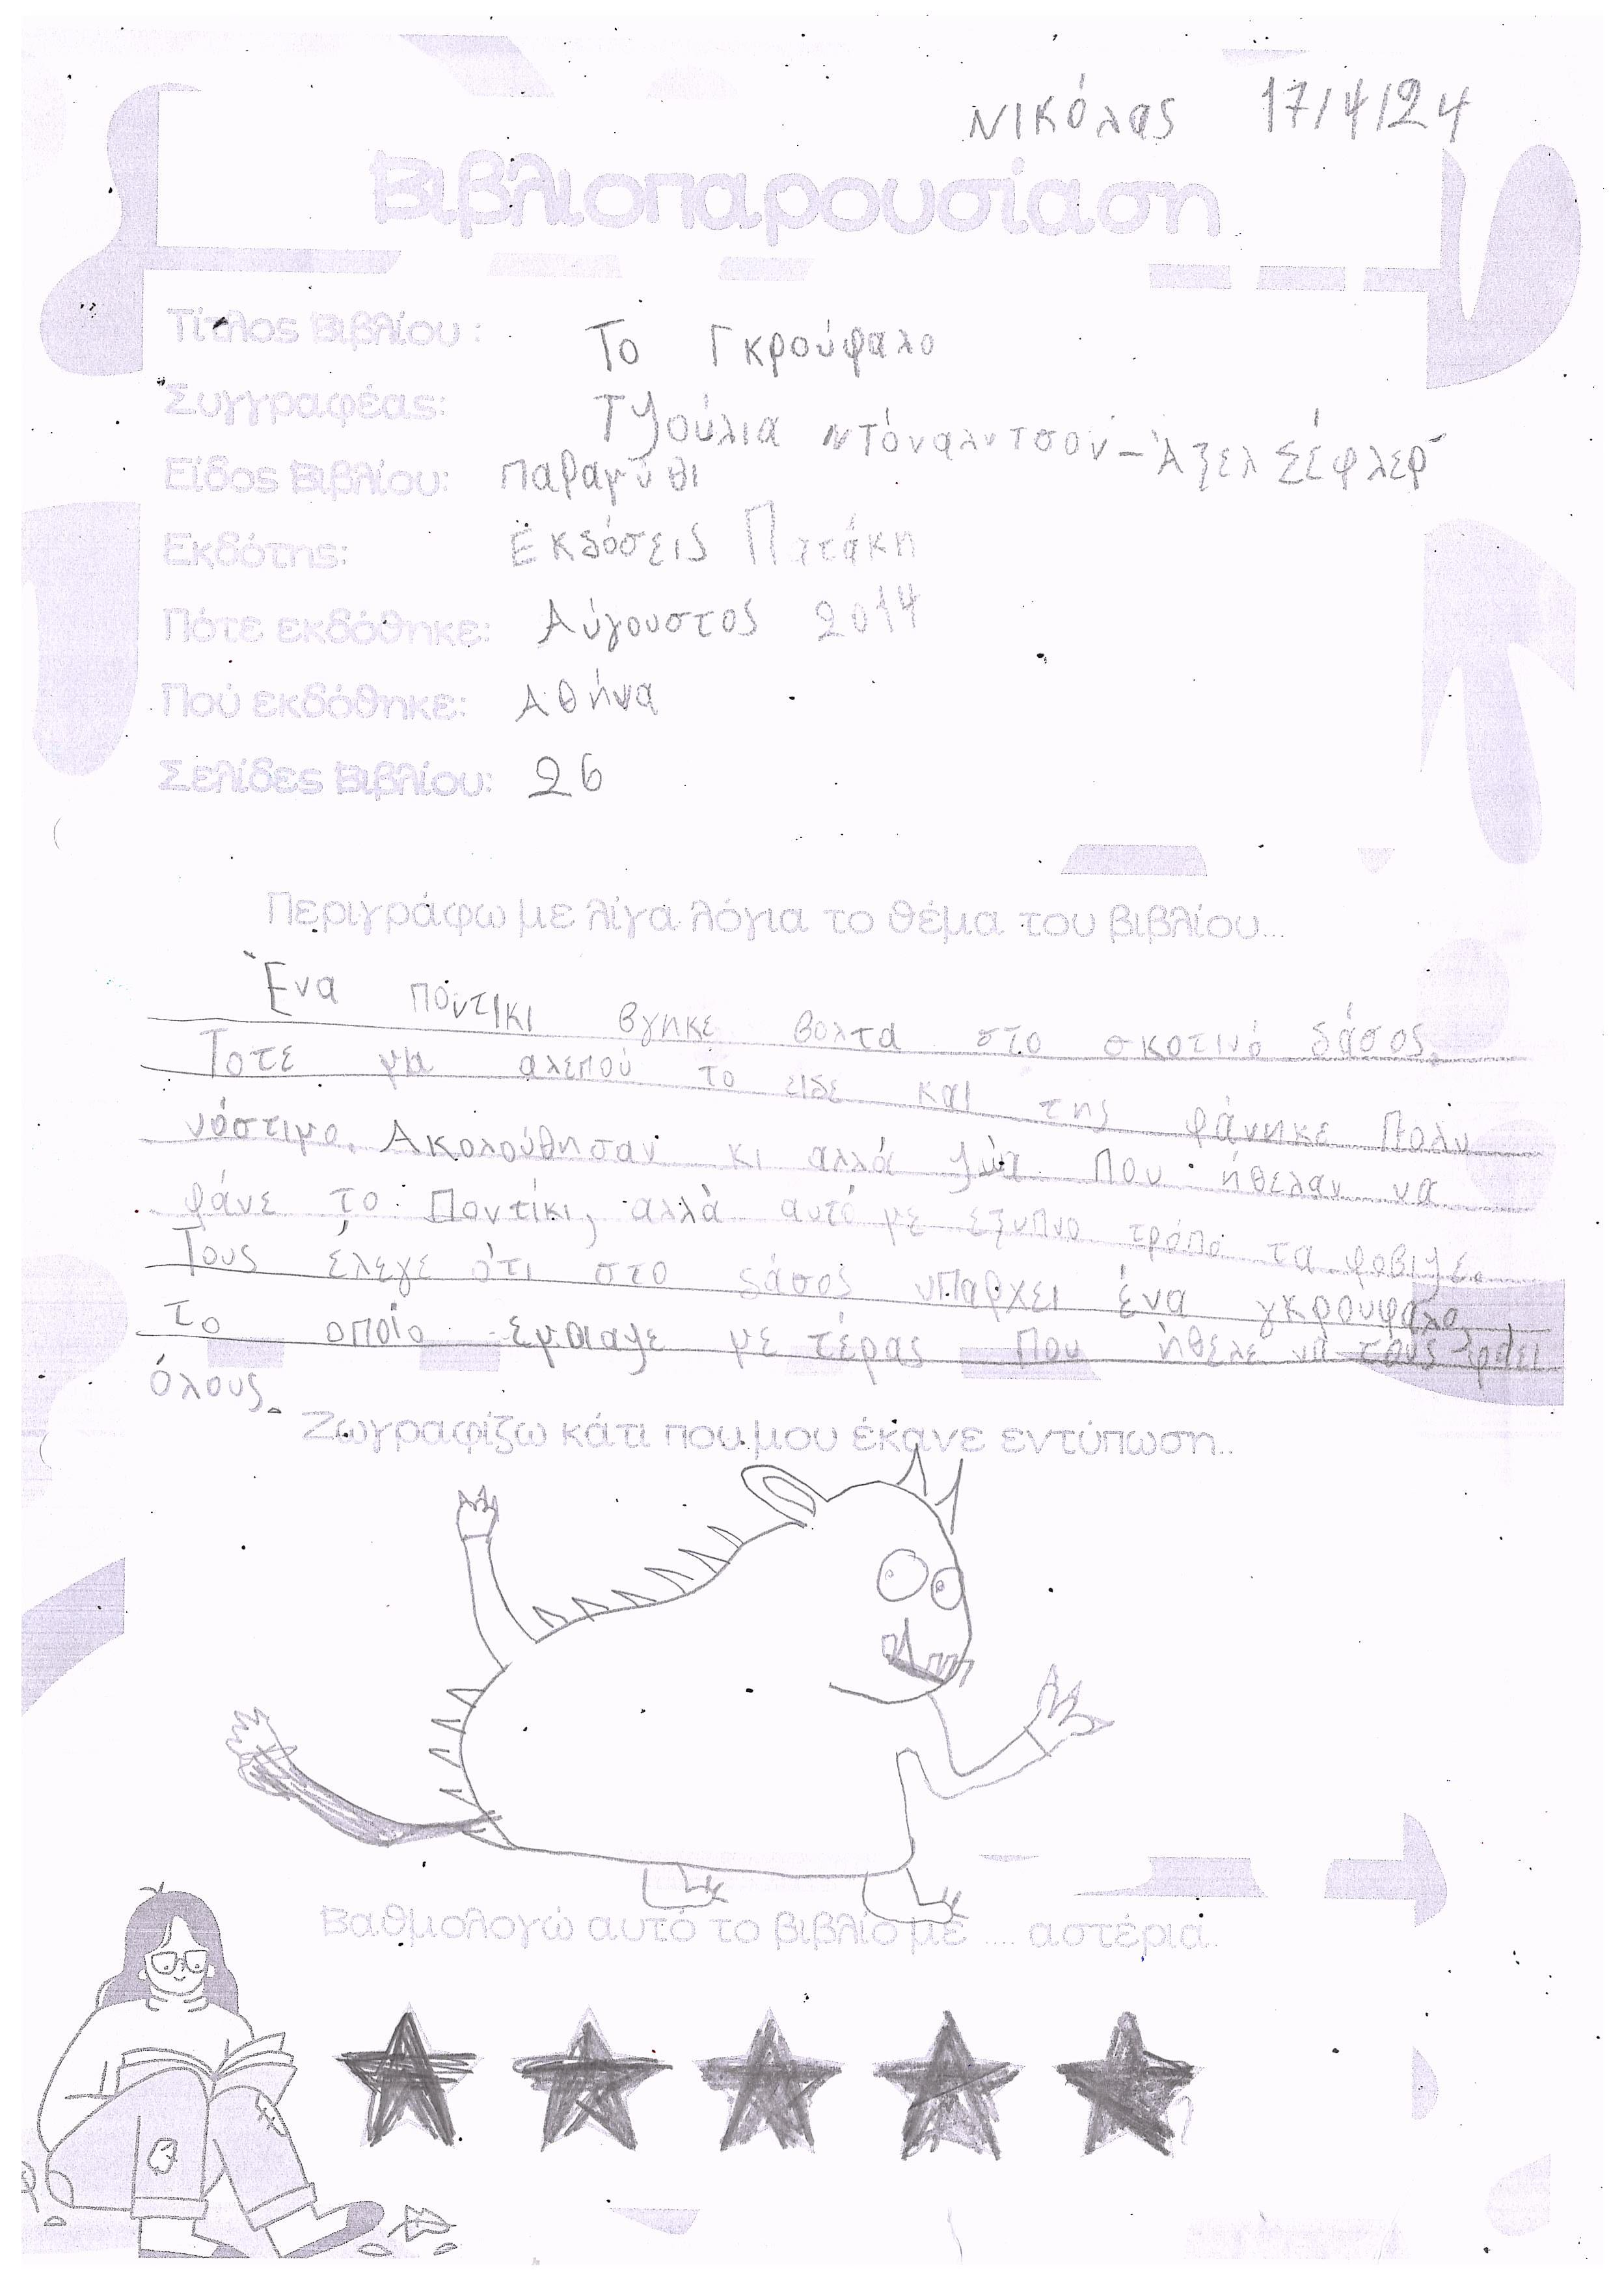 Νικόλας 17/4/24
Βιβλιοπαρουσίαση
Τίτλος Βιβλίου : Το Γκρούφαλο
Συγγραφέας: Τζούλια Ντόναλντσον - Άξελ Σέφλερ
Είδος Βιβλίου: παραμύθι
Εκδότης: Εκδόσεις Πατάκη
Πότε εκδόθηκε: Αύγουστος 2014
Πού εκδόθηκε: Αθήνα
Σελίδες Βιβλίου: 26
Περιγράφω με λίγα λόγια το θέμα του βιβλίου...
Ένα ποντίκι βγηκε βολτα στο σκοτινό δάσος.
Τοτε μια αλεπού το ειδε και της φάνηκε πολυ
νόστιμο. Ακολούθησαν κι αλλά ζώα που ήθελαν να
φάνε το ποντίκι, αλλά αυτό με εξυπνο τρόπο τα φοβιζε.
Τους έλεγε ότι στο δάσος υπαρχει ένα γκρούφαλο,
το οποίο εμοιαζε με τέρας που ήθελε να τους φαει
όλους.
Ζωγραφίζω κάτι που μου έκανε εντύπωση..
Βαθμολογώ αυτό το βιβλίο με .... αστέρια..